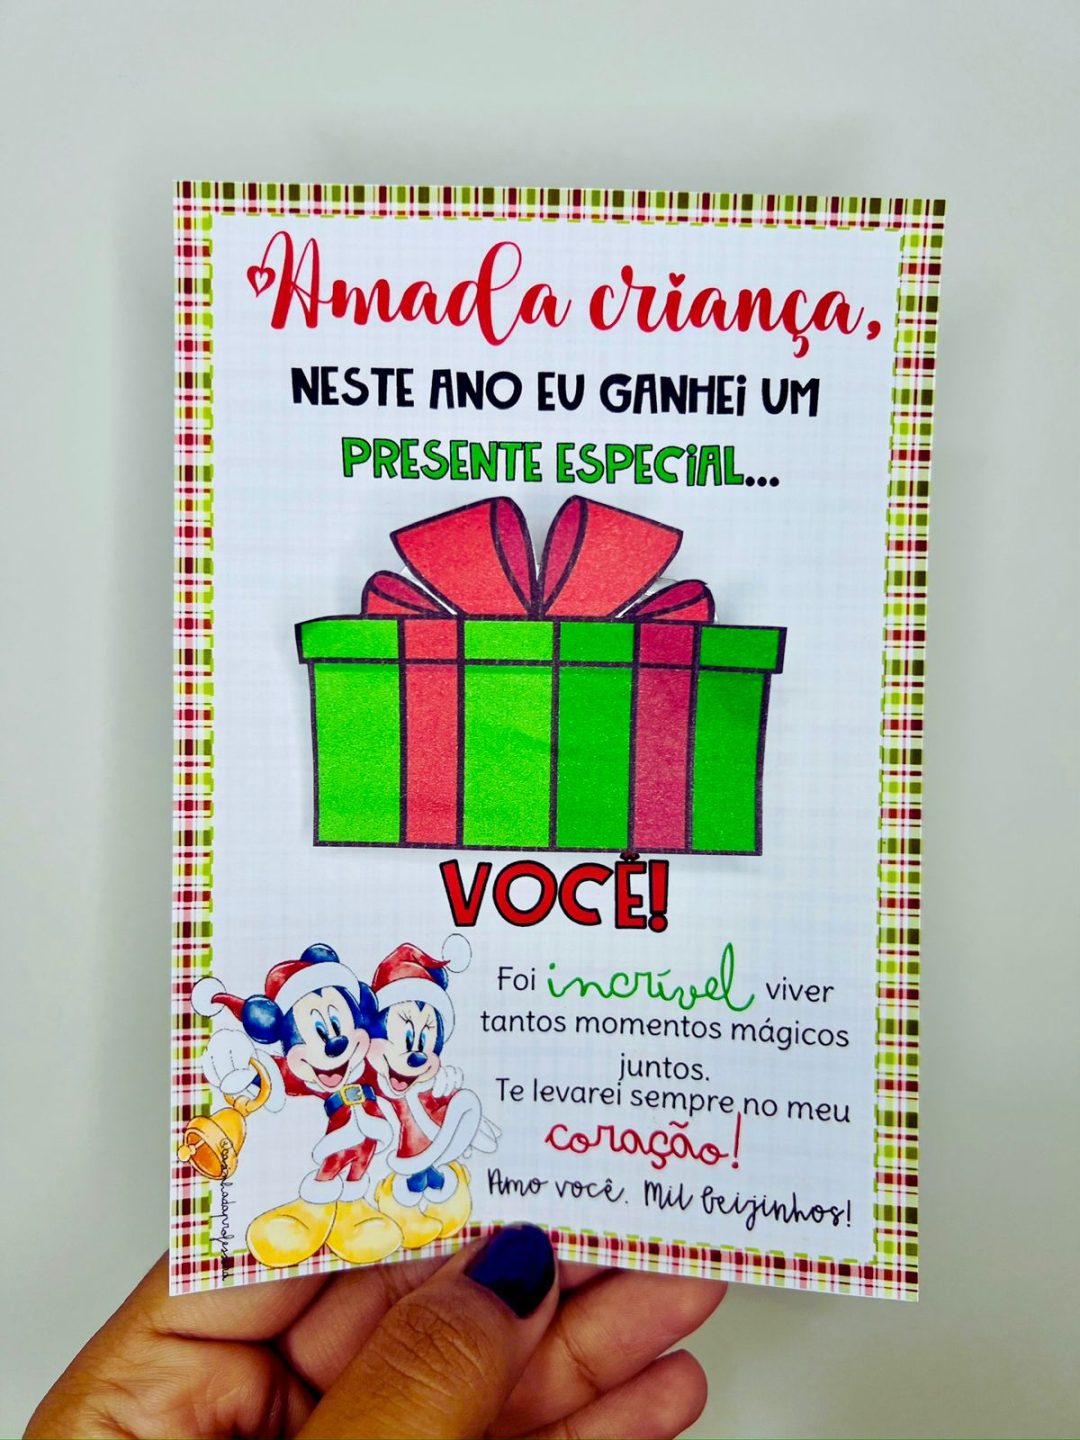 Amada criança,
NESTE ANO EU GANHEI UM
PRESENTE ESPECIAL...
VOCÊ!
Foi incrível viver
tantos momentos mágicos
juntos.
Te levarei sempre no meu
coração!
Amo você. Mil beijinhos!